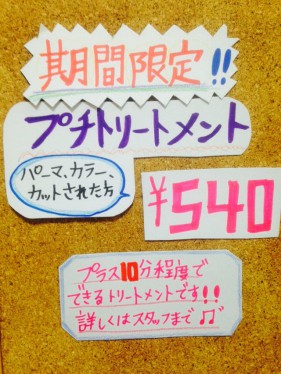 期間限定!!
プチトリートメント
パーマ、カラー、
カットされた方
¥540
プラス10分程度で
できるトリートメントです!!
詳しくはスタッフまで♫